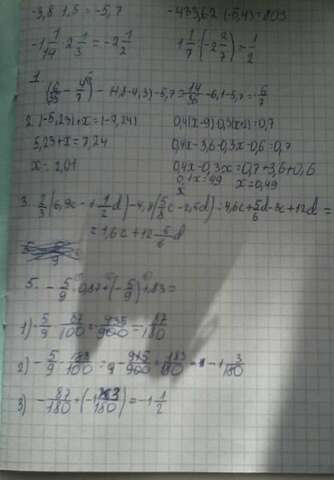 -3,8·1,5=-5,7
-433,62:(-5,4)=803
-1 1/14·2 1/3=-2 1/2
1 1/7·(-2 2/7)=1/2
1.
(6/35-4/7)-(4,8-4,3)-5,7=14/35-6,1-5,7=-6/7
2. (-5,23)+x=(-7,24)
5,23+x=7,24
x=2,01
0,4(x-9)-0,3(x+2)=0,7
0,4x-3,6-0,3x-0,6=0,7
0,4x-0,3x=0,7+3,6+0,6
0,1x=49
x
x=0,49
3. 2/3(6,9c-1 1/2d)-4,8(5/8c-2,5d)=4,6c+5/6d-3c+12d=
=1,6c+12 5/6d
5. -5/9·0,87+(-5/9)·1,83=
1) -5/9·87/100=-435/900=-87/180
2) -5/9·183/100=-915/900=-183/180=-1 3/180
3) -87/180+(-1 3/180)=-1 1/2